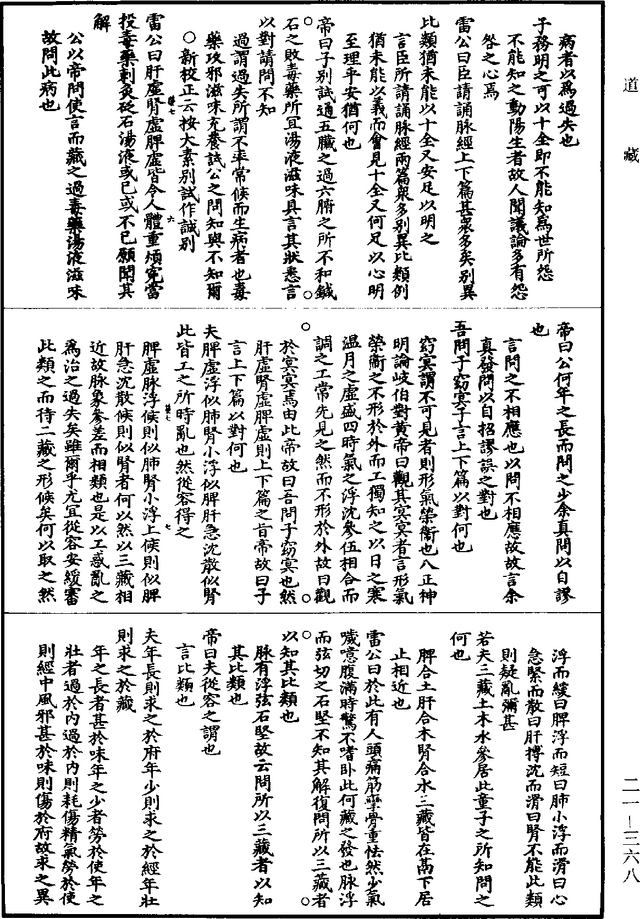 道藏
二一—三六八
病者以為過失也
子務明之可以十全即不能知為世所怨
不能知之動陽生者故人聞議論多有怨
咎之心焉
雷公曰臣請誦脉經上下篇甚衆多矣別異
比類猶未能以十全又安足以明之
言臣所請誦脉經兩篇衆多別異比類例
猶未能以義而會見十全又何足以心明
至理乎安猶何也
帝曰子別試通五臟之過六腑之所不和鍼
石之敗毒藥所宜湯液滋味具言其狀悉言
以對請問不知
過謂過失所謂不率常候而生病者也毒
藥攻邪滋味充養試公之問知與不知爾
○新校正云按大素別試作誠別
雷公曰肝虛腎虛脾虛皆令人體重煩寃當
投毒藥刺灸砭石湯液或已或不已願聞其
解
公以帝問使言而藏之過毒藥湯液滋味
故問此病也
帝曰公何年之長而問之少余真問以自謬
也
言問之不相應也以問不相應故故言余
真發問以自招謬誤之對也
吾問子窈冥子言上下篇以對何也
窈冥謂不可見者則形氣榮衞也八正神
明論岐伯對黃帝曰觀其冥冥者言形氣
榮衞之不形於外而工獨知之以日之寒
温月之虛盛四時氣之浮沈參伍相合而
調之工常先見之然而不形於外故曰觀
於冥冥焉由此帝故曰吾問子窈冥也然
肝虛腎虛脾虛則上下篇之旨帝故曰子
言上下篇以對何也
夫脾虛浮似肺腎小浮似脾肝急沈散似腎
此皆工之所時亂也然從容得之
脾虛脉浮候則似肺腎小浮上候則似脾
肝急沈散候則似腎者何以然以三藏相
近故脉象參差而相類也是以工惑亂之
為治之過失矣雖爾乎尤宜從容安緩審
此類之而待二藏之形候矣何以取之然
浮而緩曰脾浮而短曰肺小浮而滑曰心
急緊而散曰肝搏沈而滑曰腎不能此類
則疑亂彌甚
若夫三藏土木水參居此童子之所知問之
何也
脾合土肝合木腎合水三藏皆在鬲下居
止相近也
雷公曰於此有人頭痛筋攣骨重怯然少氣
噦噫腹滿時驚不嗜卧此何藏之發也脉浮
而弦切之石堅不知其解復問所以三藏者
以知其比類也
脉有浮弦石堅故云問所以三藏者以知
其比類也
帝曰夫從容之謂也
言比類也
夫年長則求之於府年少則求之於經年壯
則求之於藏
年之長者甚於味年之少者勞於使年之
壯者過於內過於內則耗傷精氣勞於使
則經中風邪甚於味則傷於府故求之異